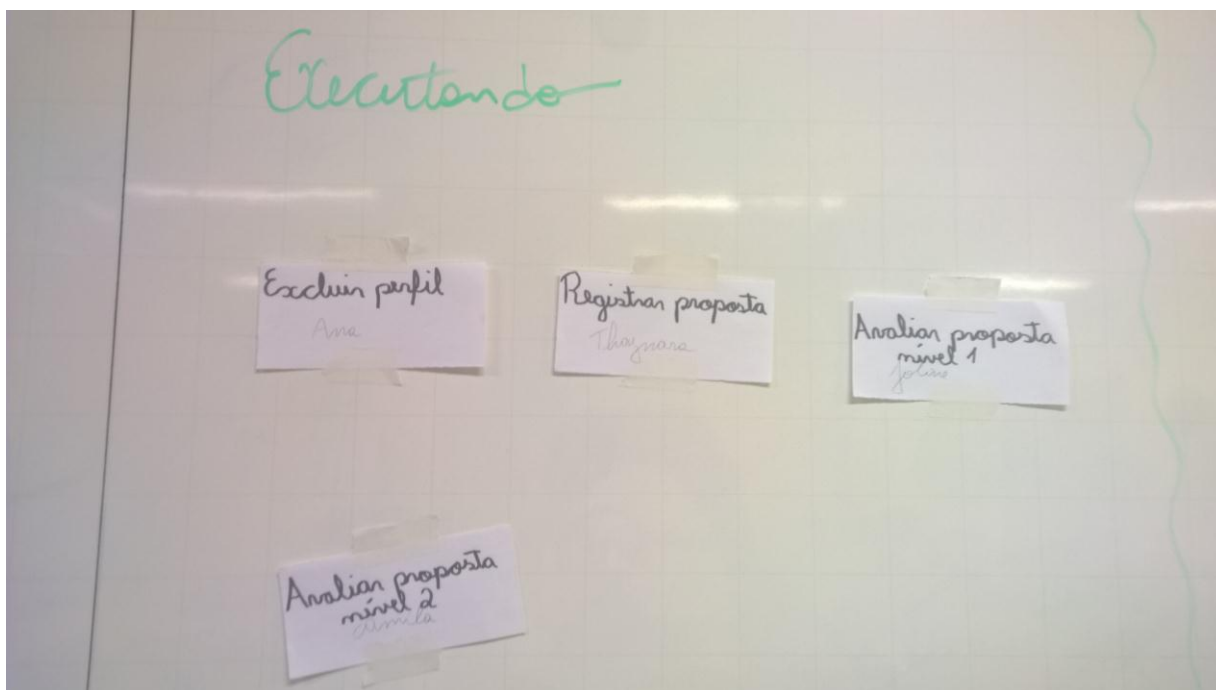 Executando
Excluir perfil
Ana
Registrar proposta
Thaynara
Avaliar proposta
nível 1
Avaliar proposta
nível 2